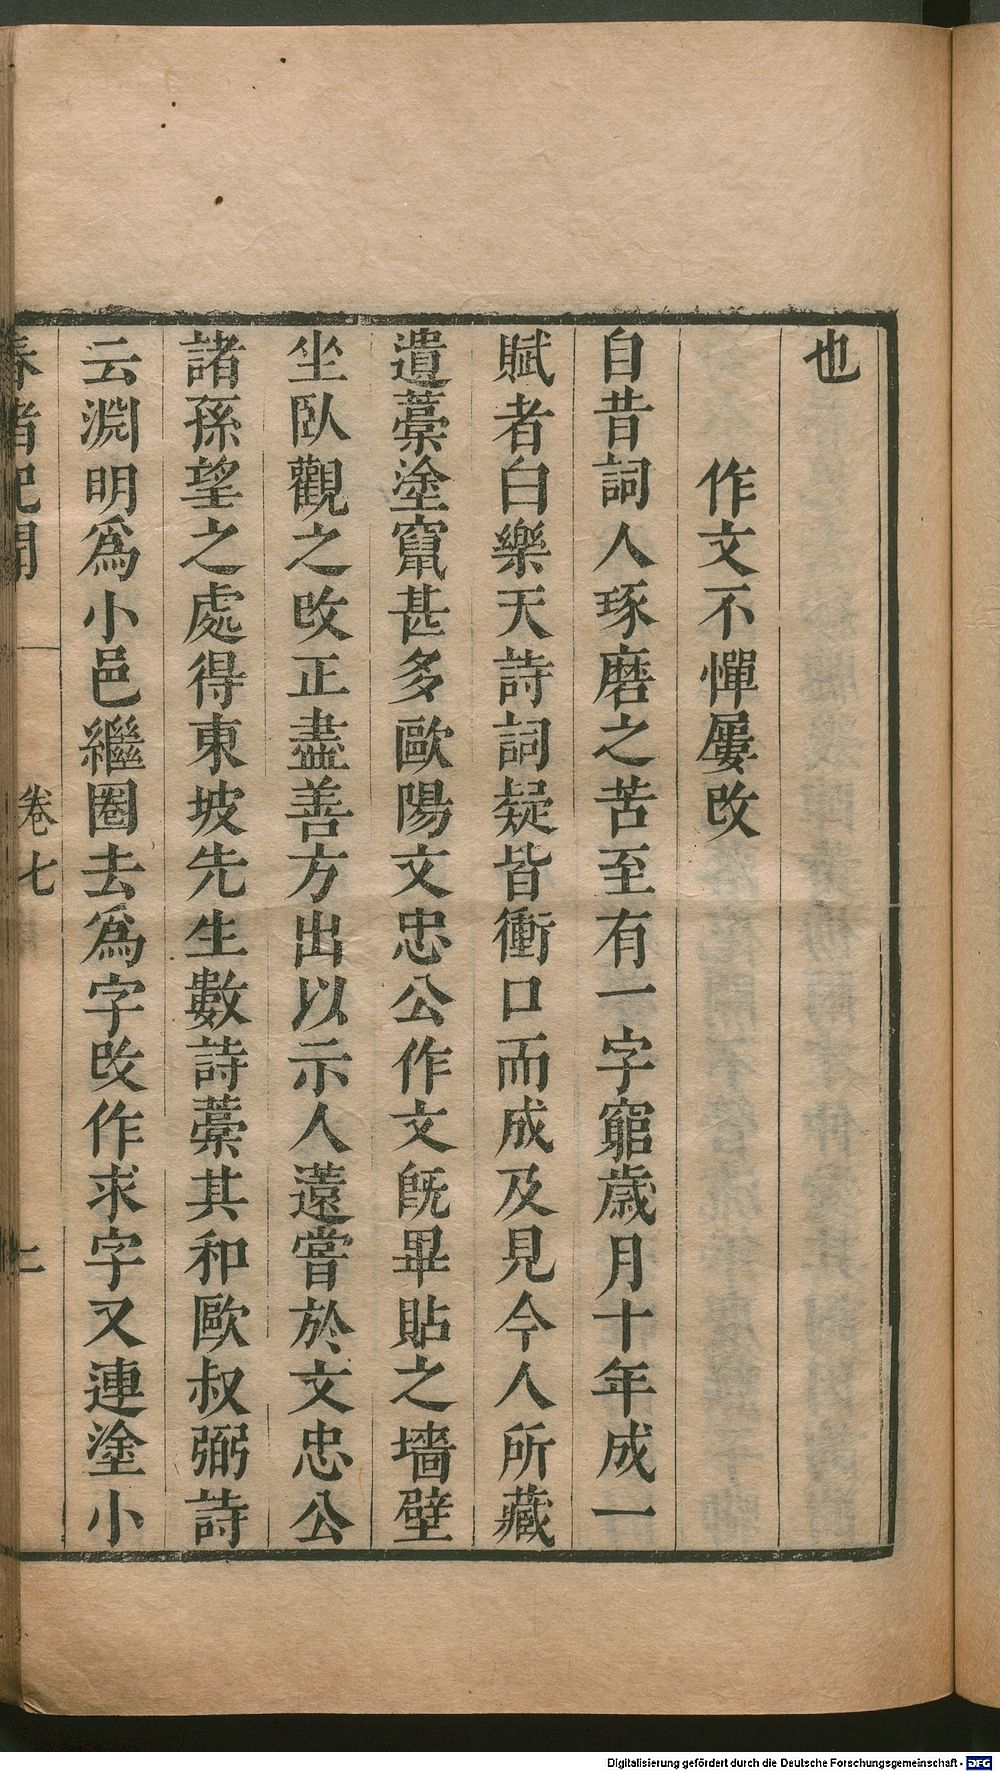 也
作文不憚屢改
自昔詞人琢磨之苦至有一字窮歲月十年成一
賦者白樂天詩詞疑皆衝口而成及見今人所藏
遺藁塗竄甚多歐陽文忠公作文既畢貼之墻壁
坐臥觀之改正盡善方出以示人薳嘗於文忠公
諸孫望之處得東坡先生數詩藁其和歐叔弼詩
云淵明爲小邑繼圈去爲字改作求字又連塗小
春渚紀聞
卷七
二
Digitalisierung gefördert durch die Deutsche Forschungsgemeinschaft - DFG